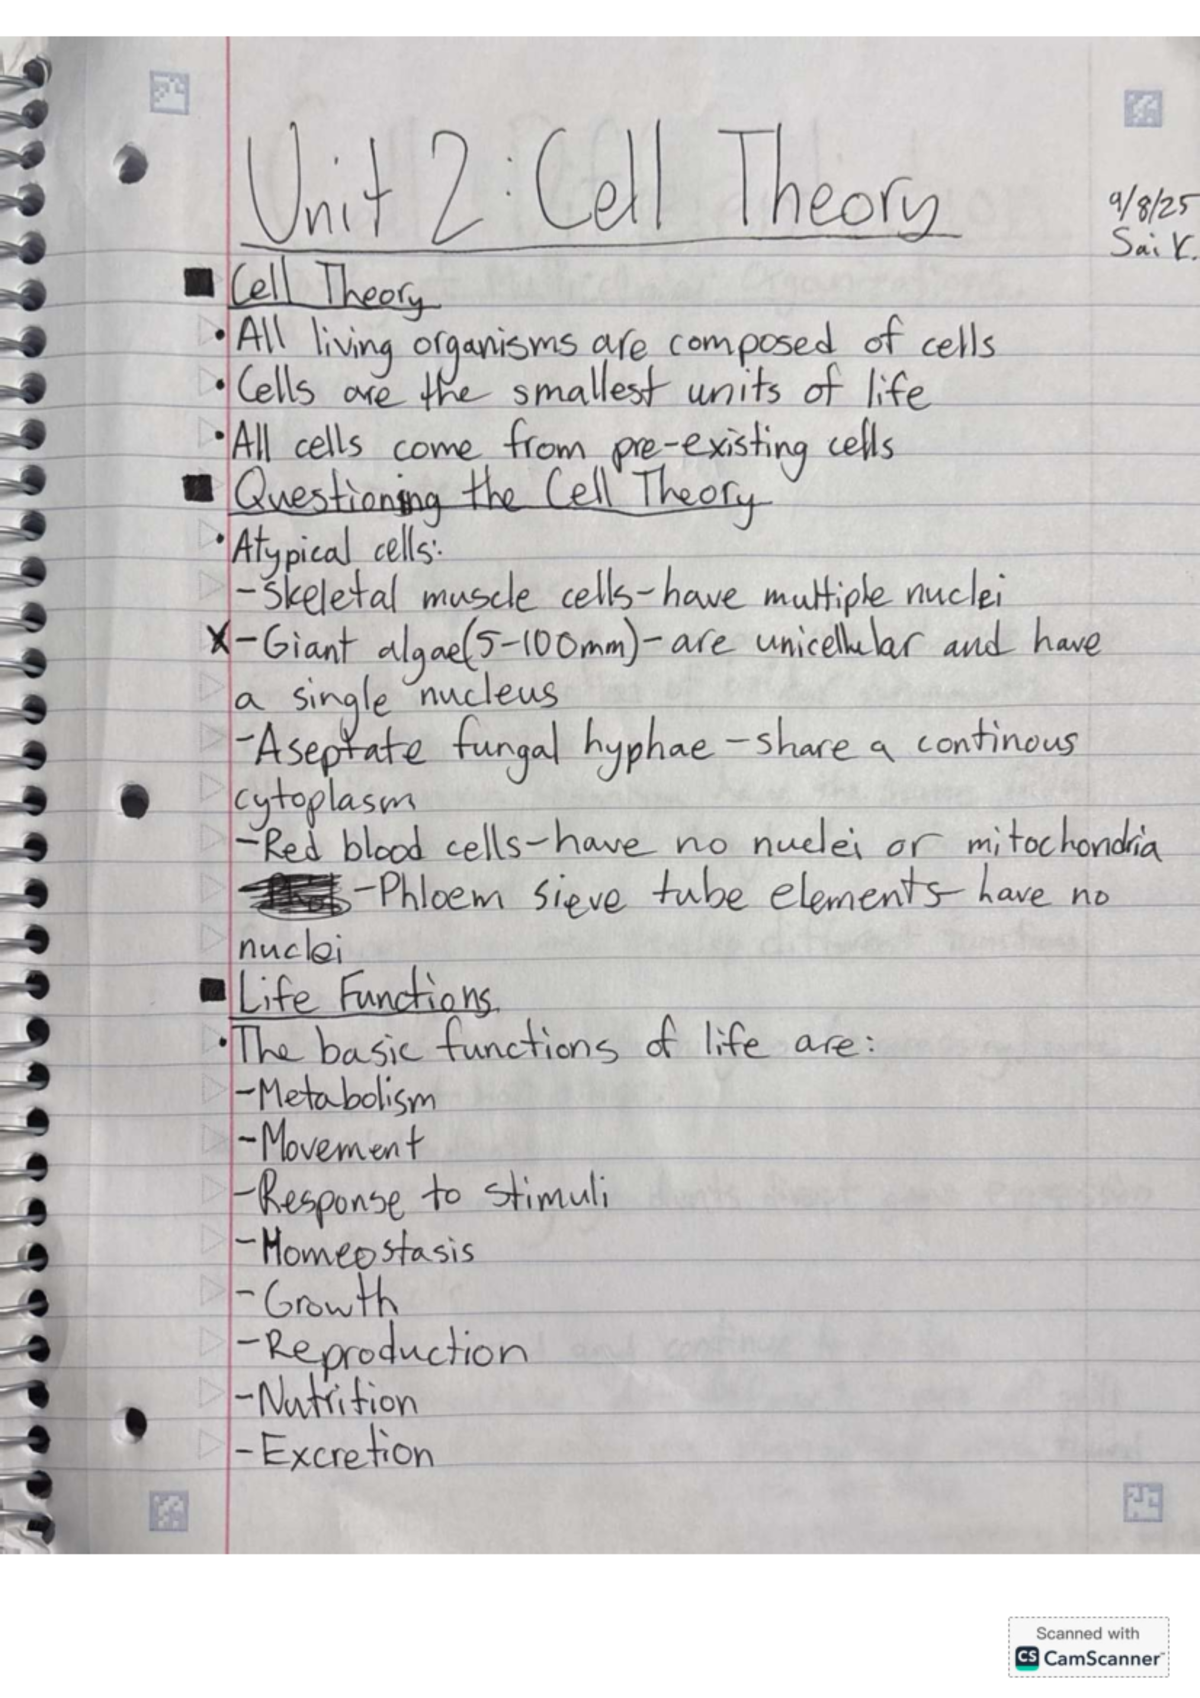 Unit 2: Cell Theory
9/8/25
Sai K.
Cell Theory
• All living organisms are composed of cells
• Cells are the smallest units of life
• All cells come from pre-existing cells
Questioning the Cell Theory
• Atypical cells:
-Skeletal muscle cells-have multiple nuclei
X-Giant algae(5-100mm)-are unicellular and have
a single nucleus
-Aseptate fungal hyphae-share a continous
cytoplasm
-Red blood cells-have no nuclei or mitochondria
-Phloem sieve tube elements-have no
nuclei
Life Functions
• The basic functions of life are:
-Metabolism
-Movement
-Response to stimuli
-Homeostasis
-Growth
-Reproduction
-Nutrition
-Excretion
Scanned with
CS CamScanner